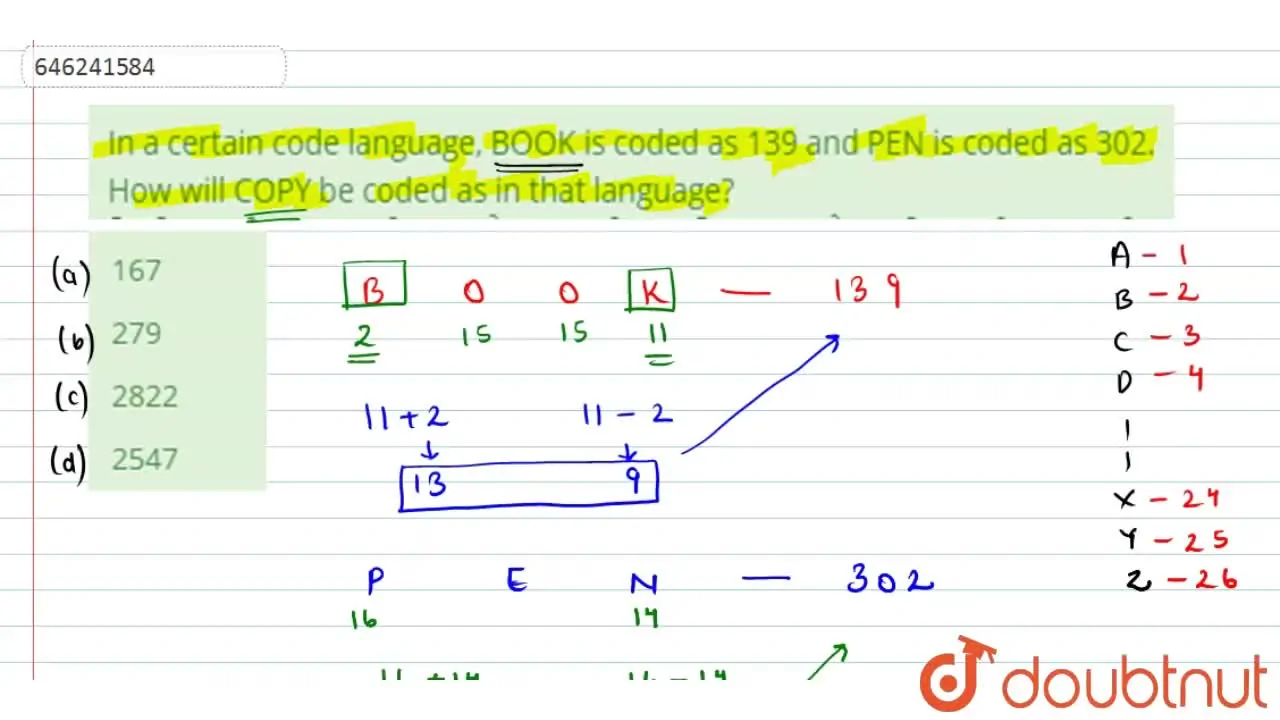 646241584
In a certain code language, BOOK is coded as 139 and PEN is coded as 302.
How will COPY be coded as in that language?
(a) 167
(b) 279
(c) 2822
(d) 2547
B O O K — 139
2 15 15 11
11+2 11-2
13 9
P E N — 302
16 14
A - 1
B - 2
C - 3
D - 4
X - 24
Y - 25
Z - 26
doubtnut